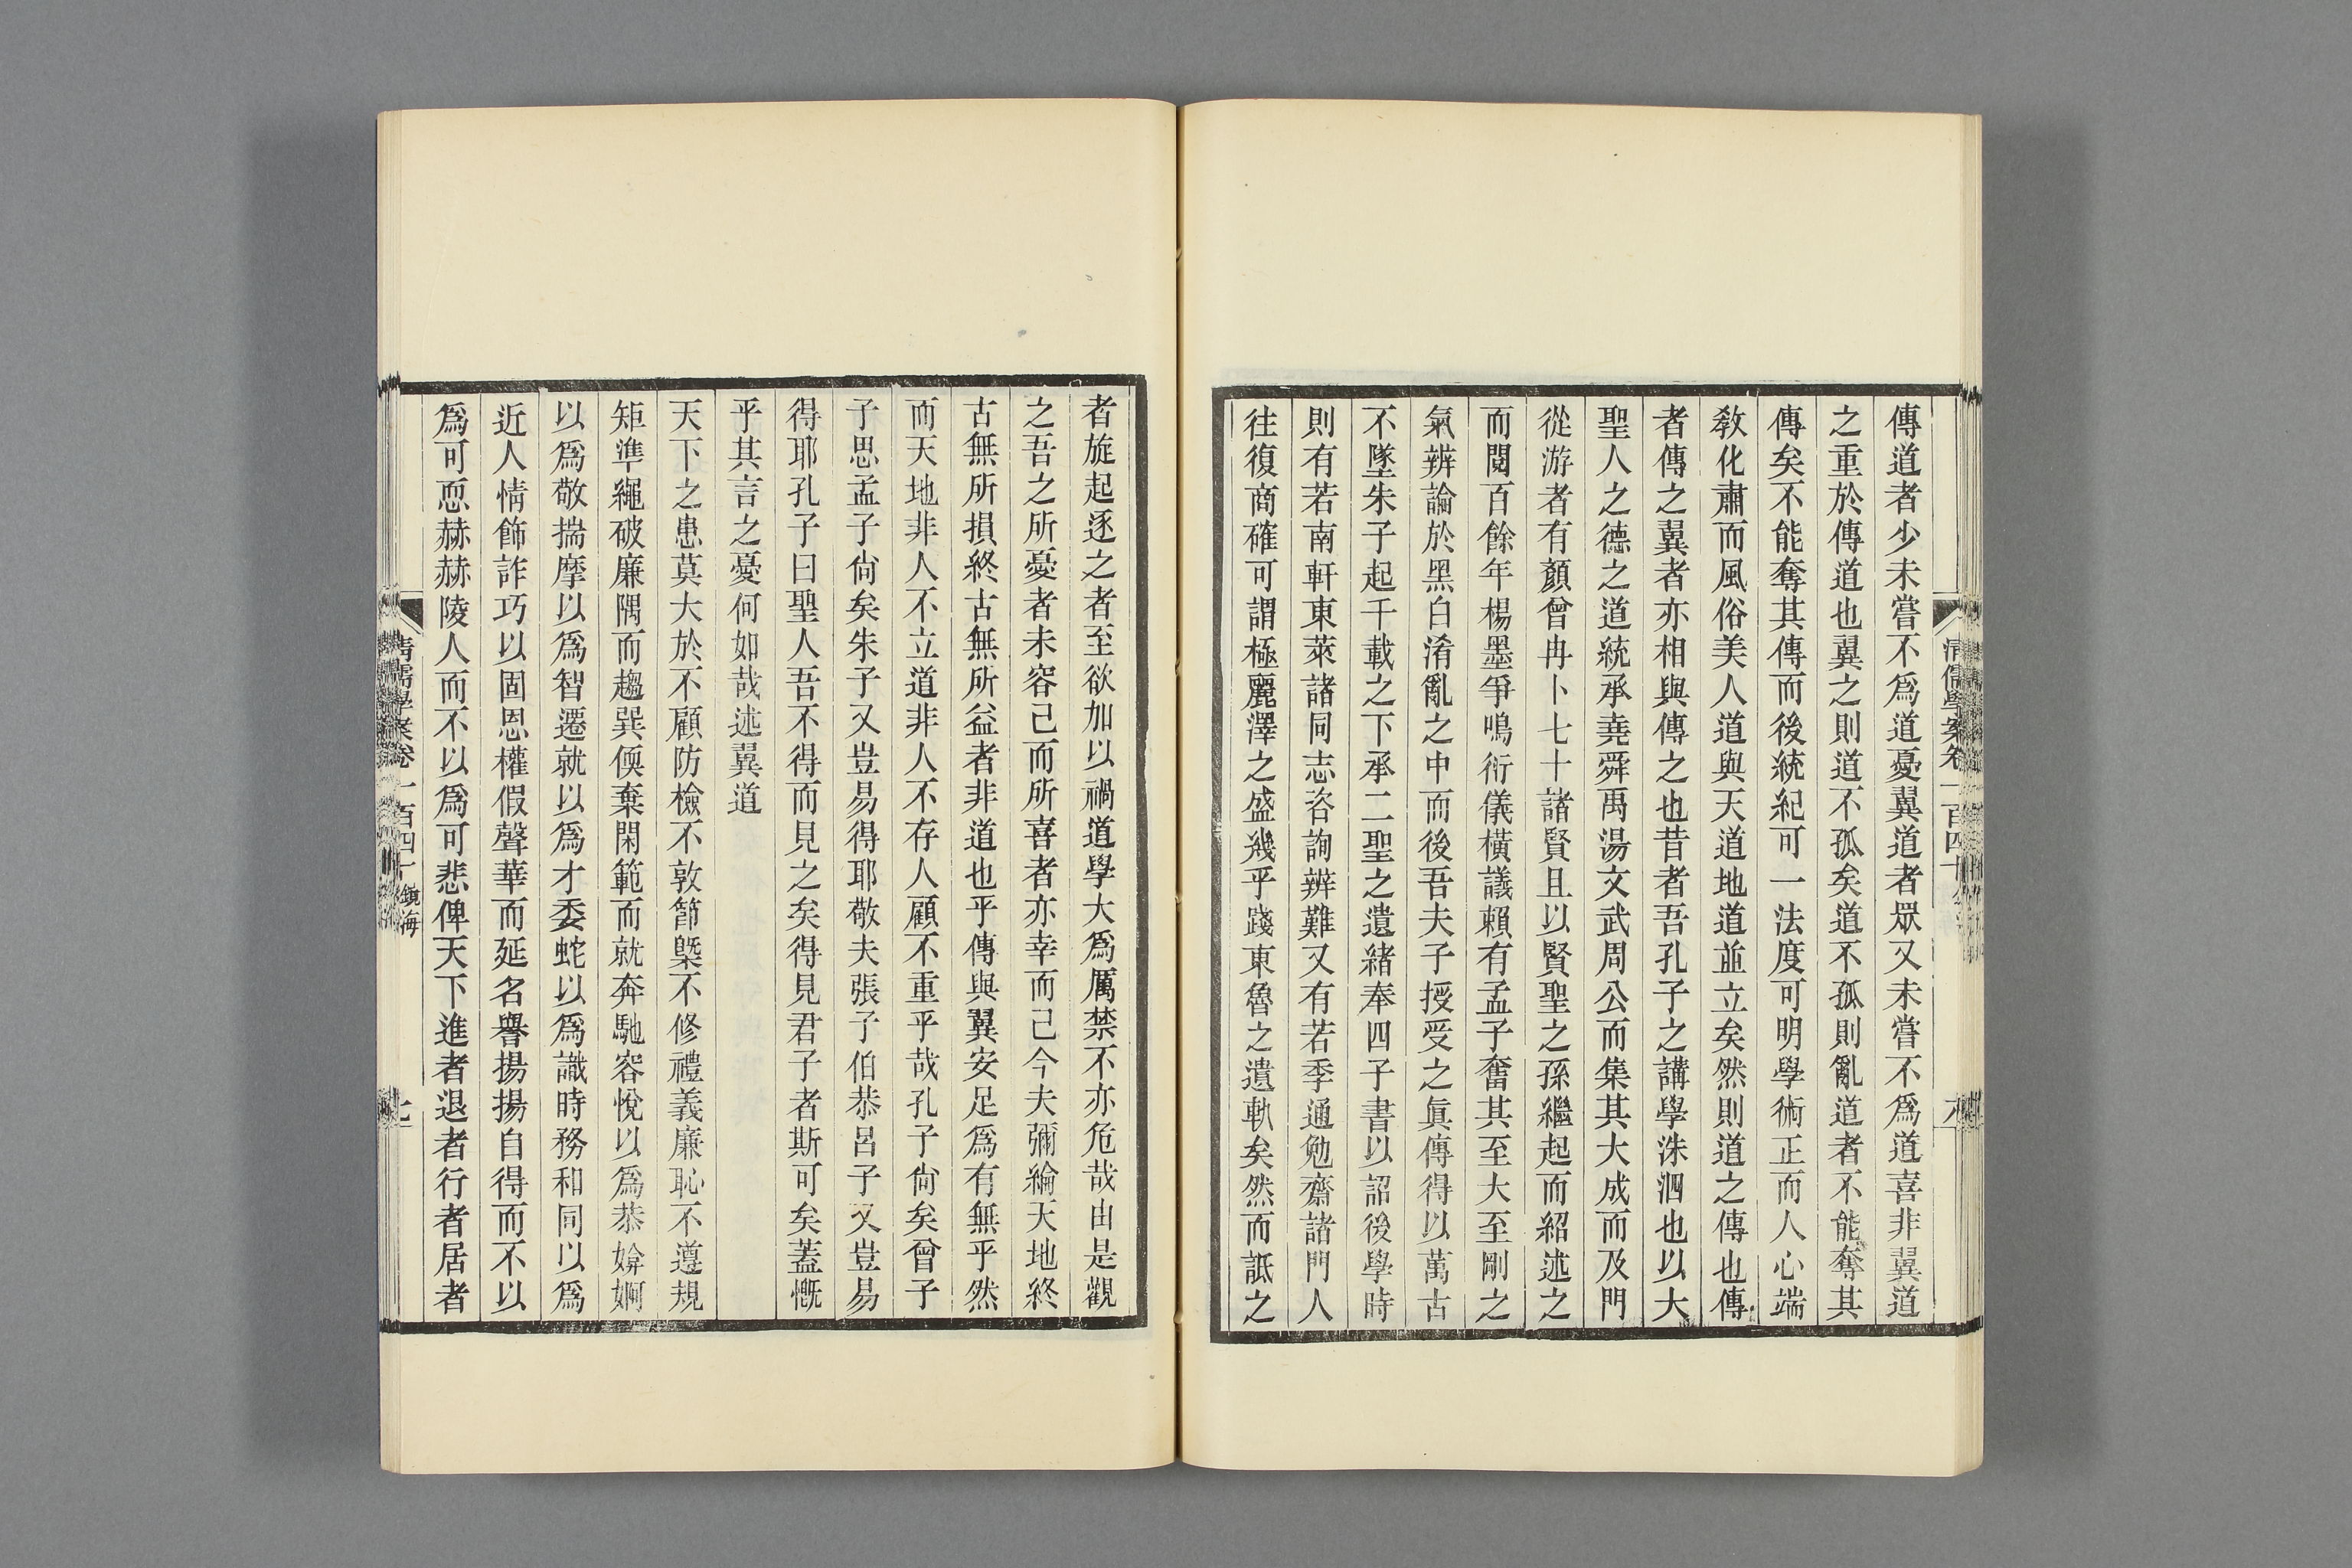 傳道者少未嘗不爲道憂翼道者眾又未嘗不爲道喜非翼道
之重於傳道也翼之則道不孤矣道不孤則亂道者不能奪其
傳矣不能奪其傳而後統紀可一法度可明學術正而人心端
敎化肅而風俗美人道與天道地道並立矣然則道之傳也傳
者傳之翼者亦相與傳之也昔者吾孔子之講學洙泗也以大
聖人之德之道統承堯舜禹湯文武周公而集其大成而及門
從游者有顏曾冉卜七十諸賢且以賢聖之孫繼起而紹述之
而閱百餘年楊墨爭鳴衍儀橫議賴有孟子奮其至大至剛之
氣辨論於黑白淆亂之中而後吾夫子授受之眞傳得以萬古
不墜朱子起千載之下承二聖之遺緒奉四子書以詔後學時
則有若南軒東萊諸同志咨詢辨難又有若季通勉齋諸門人
往復商確可謂極麗澤之盛幾乎踐東魯之遺軌矣然而詆之
者旋起逐之者至欲加以禍道學大爲厲禁不亦危哉由是觀
之吾之所憂者未容已而所喜者亦幸而已今夫彌綸天地終
古無所損終古無所益者非道也乎傳與翼安足爲有無乎然
而天地非人不立道非人不存人顧不重乎哉孔子尙矣曾子
子思孟子尙矣朱子又豈易得耶敬夫張子伯恭呂子又豈易
得耶孔子曰聖人吾不得而見之矣得見君子者斯可矣蓋慨
乎其言之憂何如哉述翼道
天下之患莫大於不顧防檢不敦節槩不修禮義廉恥不遵規
矩準繩破廉隅而趨巽偄棄閑範而就奔馳容悅以爲恭媕婀
以爲敬揣摩以爲智遷就以爲才委蛇以爲識時務和同以爲
近人情飾詐巧以固恩權假聲華而延名譽揚揚自得而不以
爲可恧赫赫陵人而不以爲可悲俾天下進者退者行者居者
清儒學案卷一百四十 鏡海
清儒學案卷一百四十